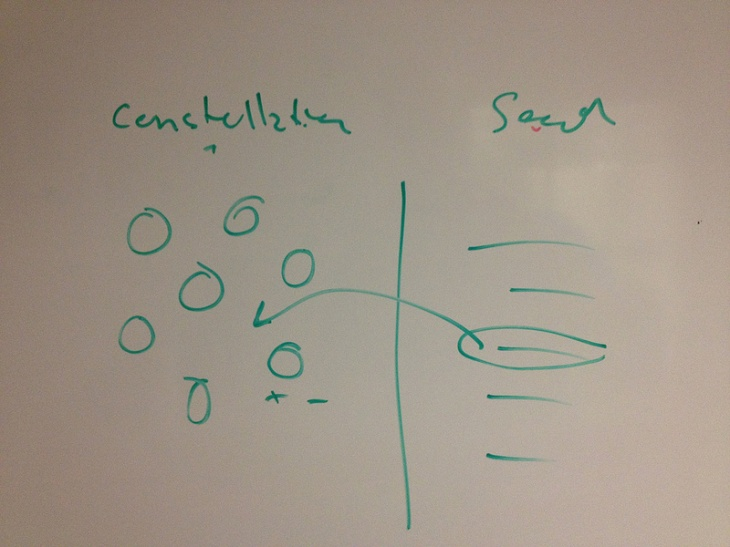 Constellation
Search
+ -